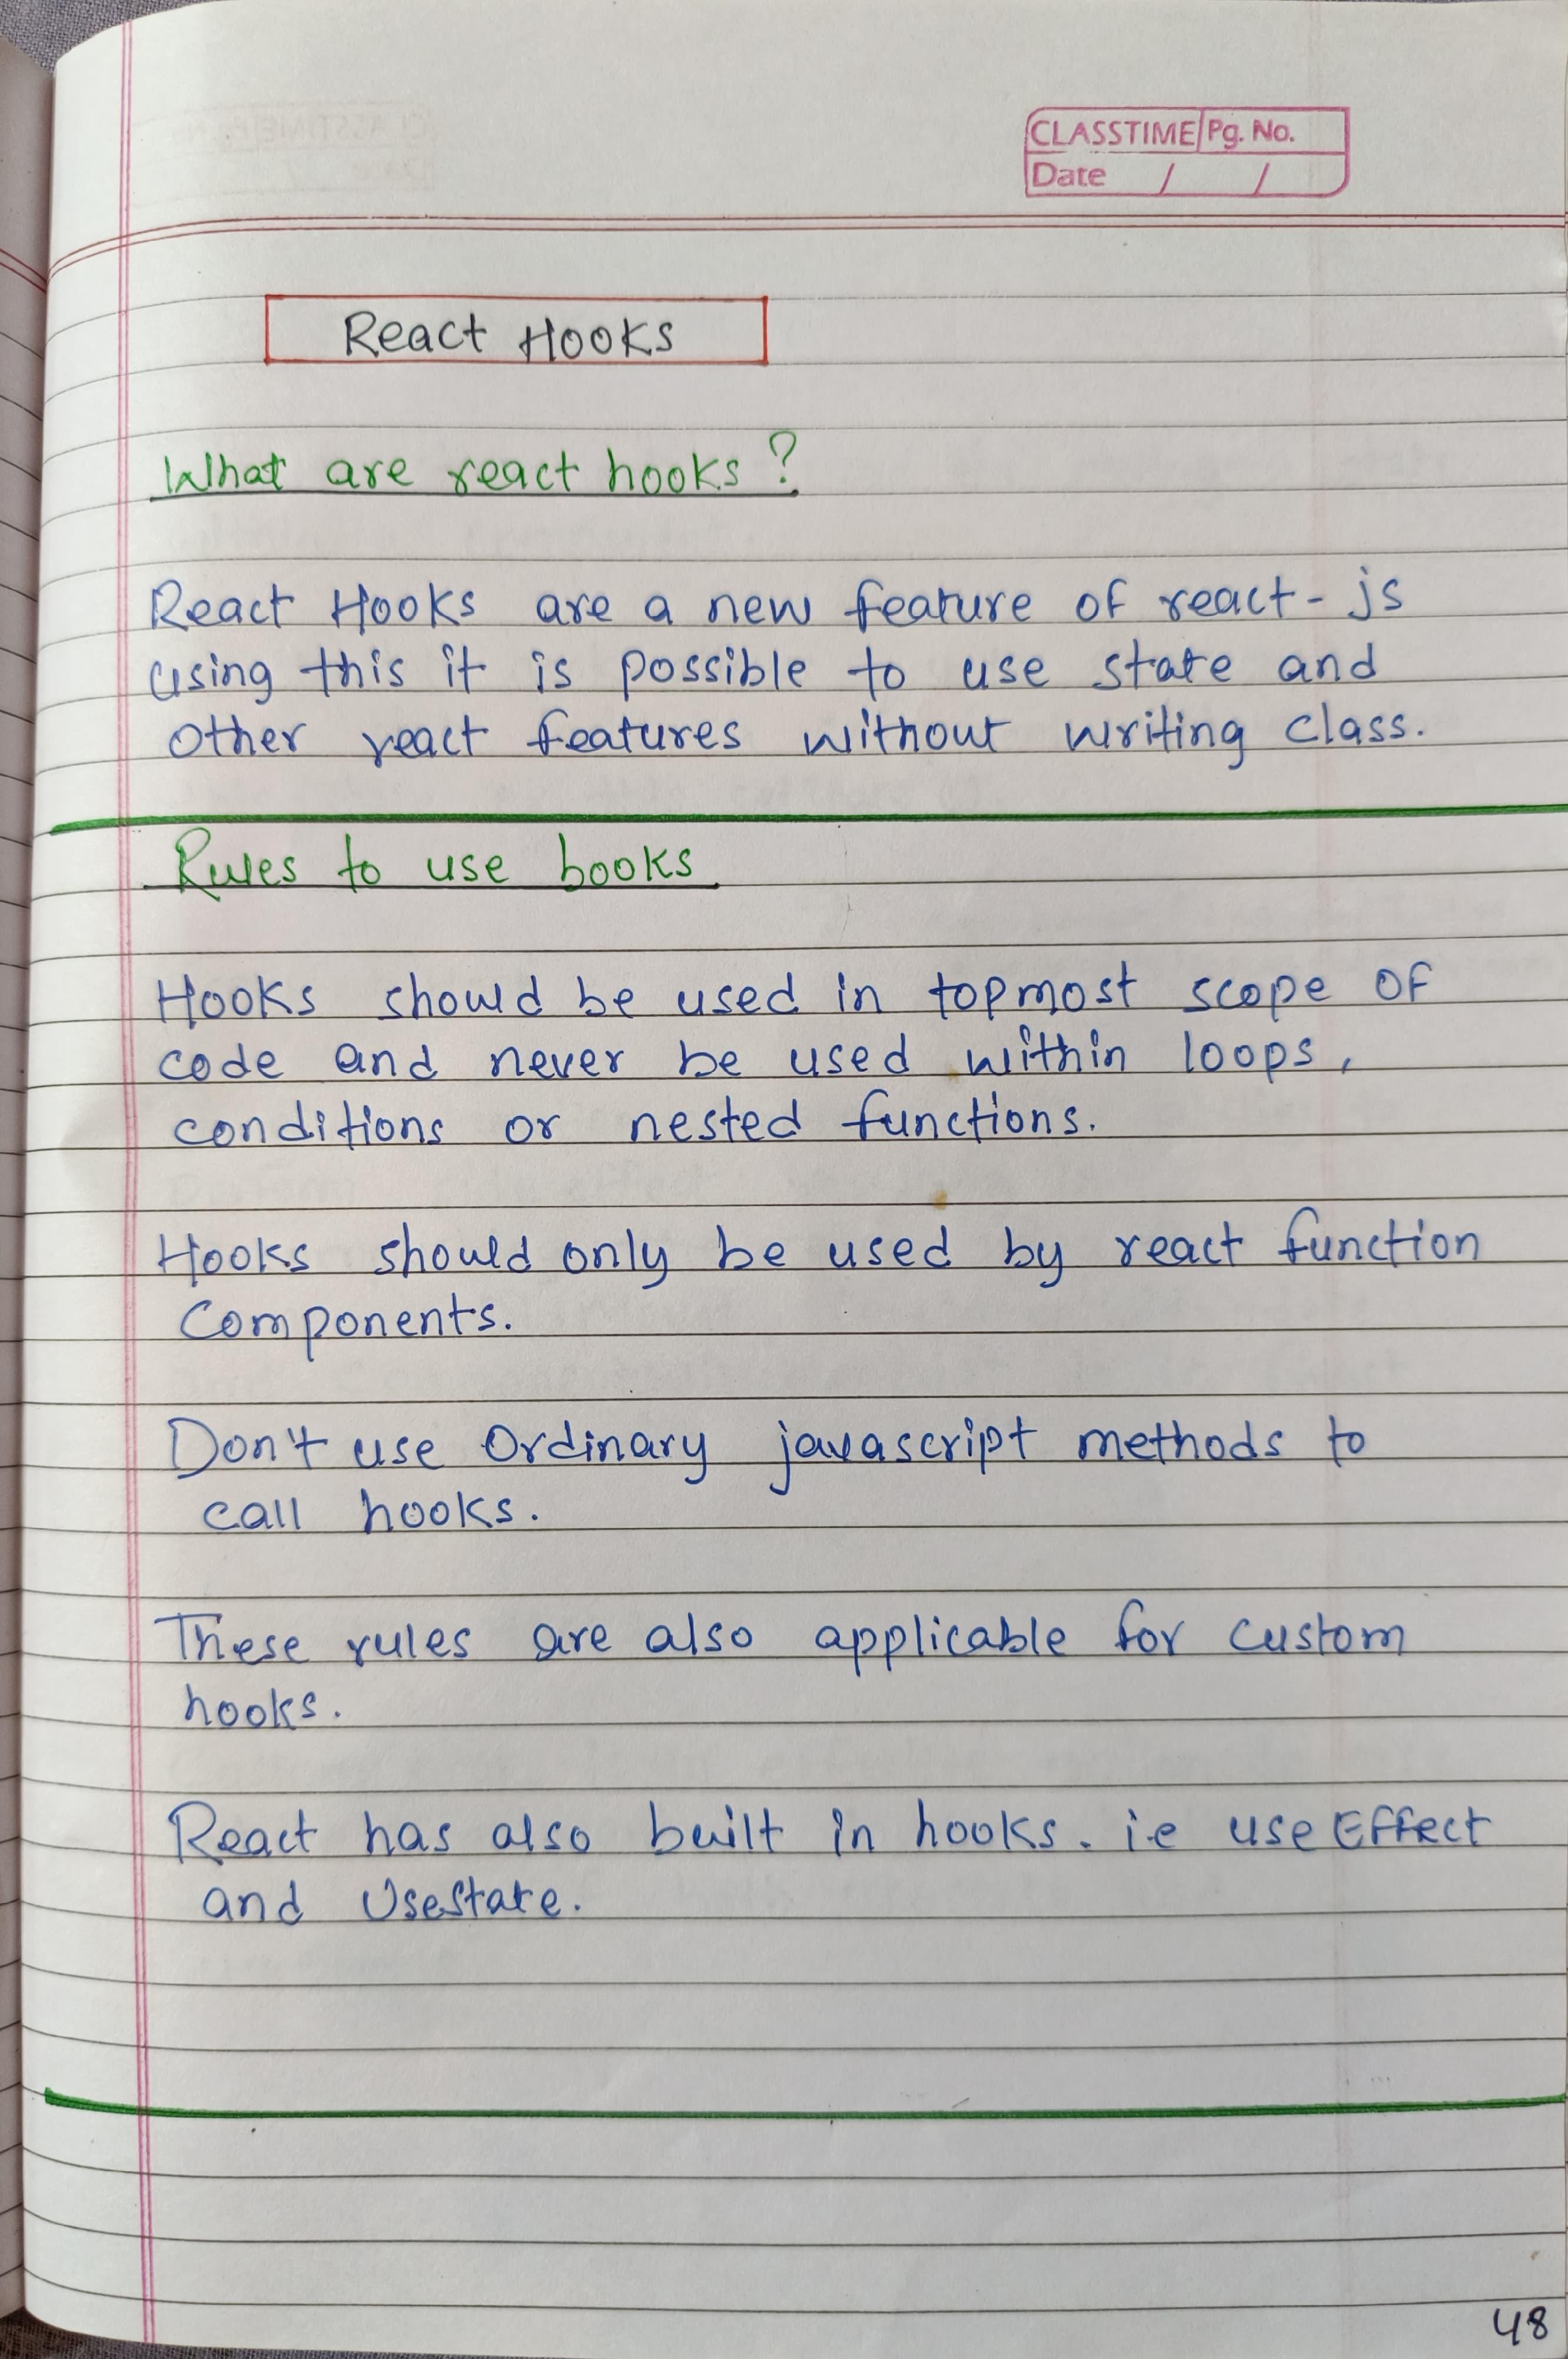 CLASSTIME Pg. No.
Date / /
React Hooks
What are react hooks ?
React Hooks are a new feature of react-js
using this it is possible to use state and
other react features without writing class.
Rules to use books
Hooks should be used in topmost scope of
code and never be used within loops,
conditions or nested functions.
Hooks should only be used by react function
components.
Don't use ordinary javascript methods to
call hooks.
These rules are also applicable for custom
hooks.
React has also built in hooks. i.e use Effect
and UseState.
48